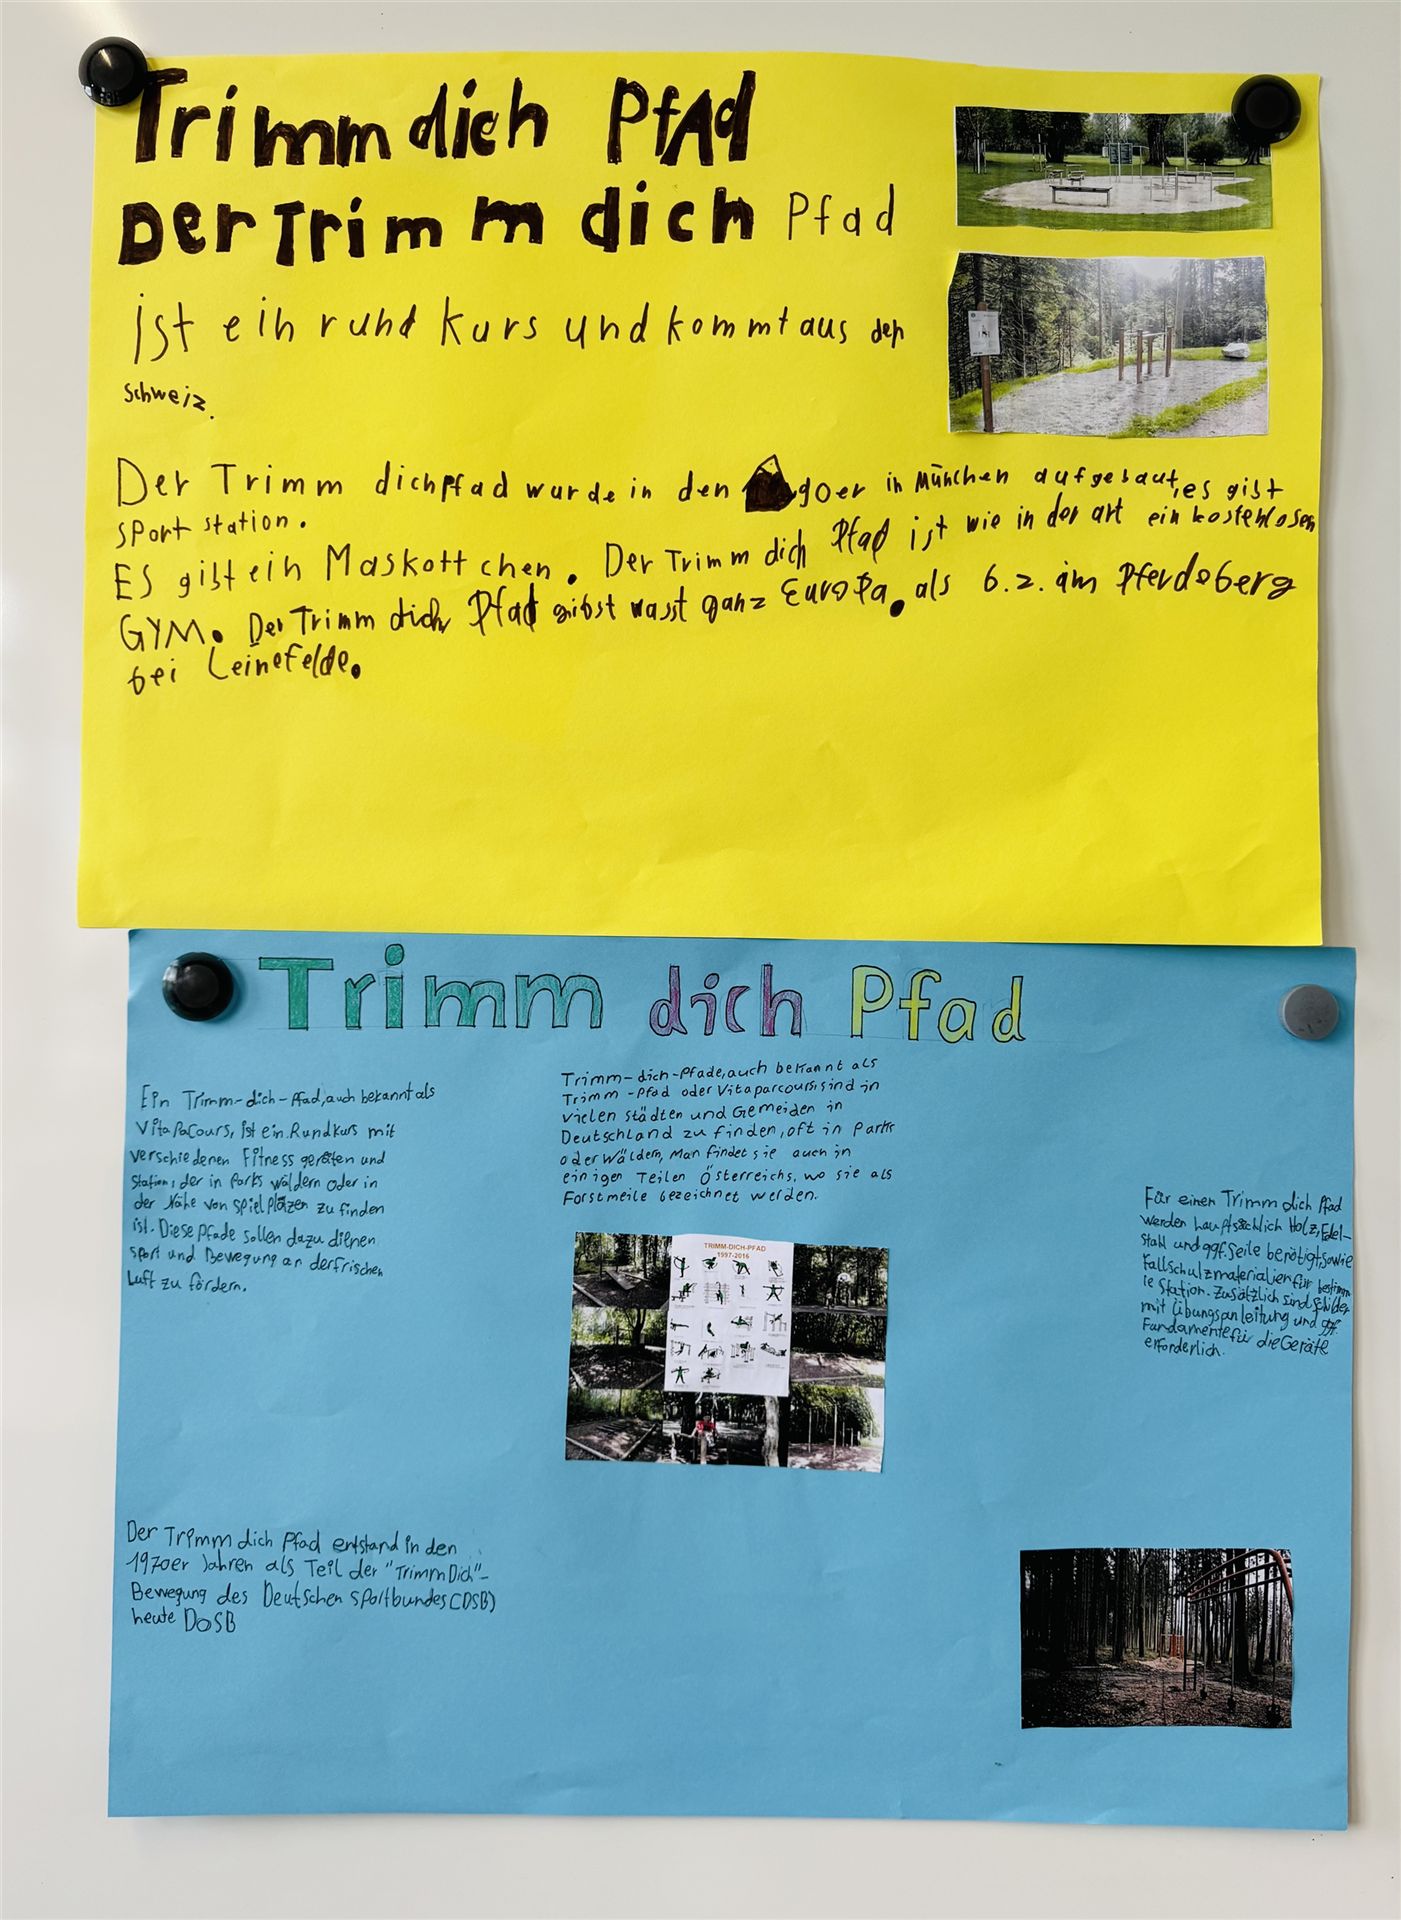 Trimm dich PfAd
Der Trimm dich Pfad
ist ein rund kurs und kommt aus der
schweiz.
Der Trimm dichpfad wurde in den goer in München aufgebaut, es gibt
sport station.
ES gibt ein Maskottchen. Der Trimm dich Pfad ist wie in der art ein kostenlosen
GYM. Der Trimm dich Pfad gibst wasst ganz Europa. als b.z. im Pferdeberg
bei Leinefelde.
Trimm dich Pfad
Ein Trimm-dich-Pfad, auch bekannt als
VitaPacours, ist ein Rundkurs mit
verschiedenen Fitness geräten und
Station, der in Parks wäldern oder in
der Nähe von Spielpläzen zu finden
ist. Diese Pfade sollen dazu dienen
sport und Bewegung an der frischen
Luft zu fördern.
Trimm-dich-Pfade, auch bekannt als
Trimm-Pfad oder Vitaparcours, sind in
vielen Städten und Gemeiden in
Deutschland zu finden, oft in Parks
oder Wäldern, Man findet sie auch in
einigen Teilen Österreichs, wo sie als
Forstmeile bezeichnet werden.
TRIMM-DICH-PFAD
1997-2016
Für einen Trimm dich Pfad
werden hauptsächlich Holz, Edel-
stahl und ggf. Seile benötigt, sowie
Fallschulzmaterialien für bestimm
te Station. Zusätzlich sind Schilder
mit Übungsanleitung und ggf.
Fundamente für die Geräte
erforderlich.
Der Trimm dich Pfad entstand in den
1970er Jahren als Teil der "Trimm Dich"-
Bewegung des Deutschen Sportbundes (DSB)
heute DOSB